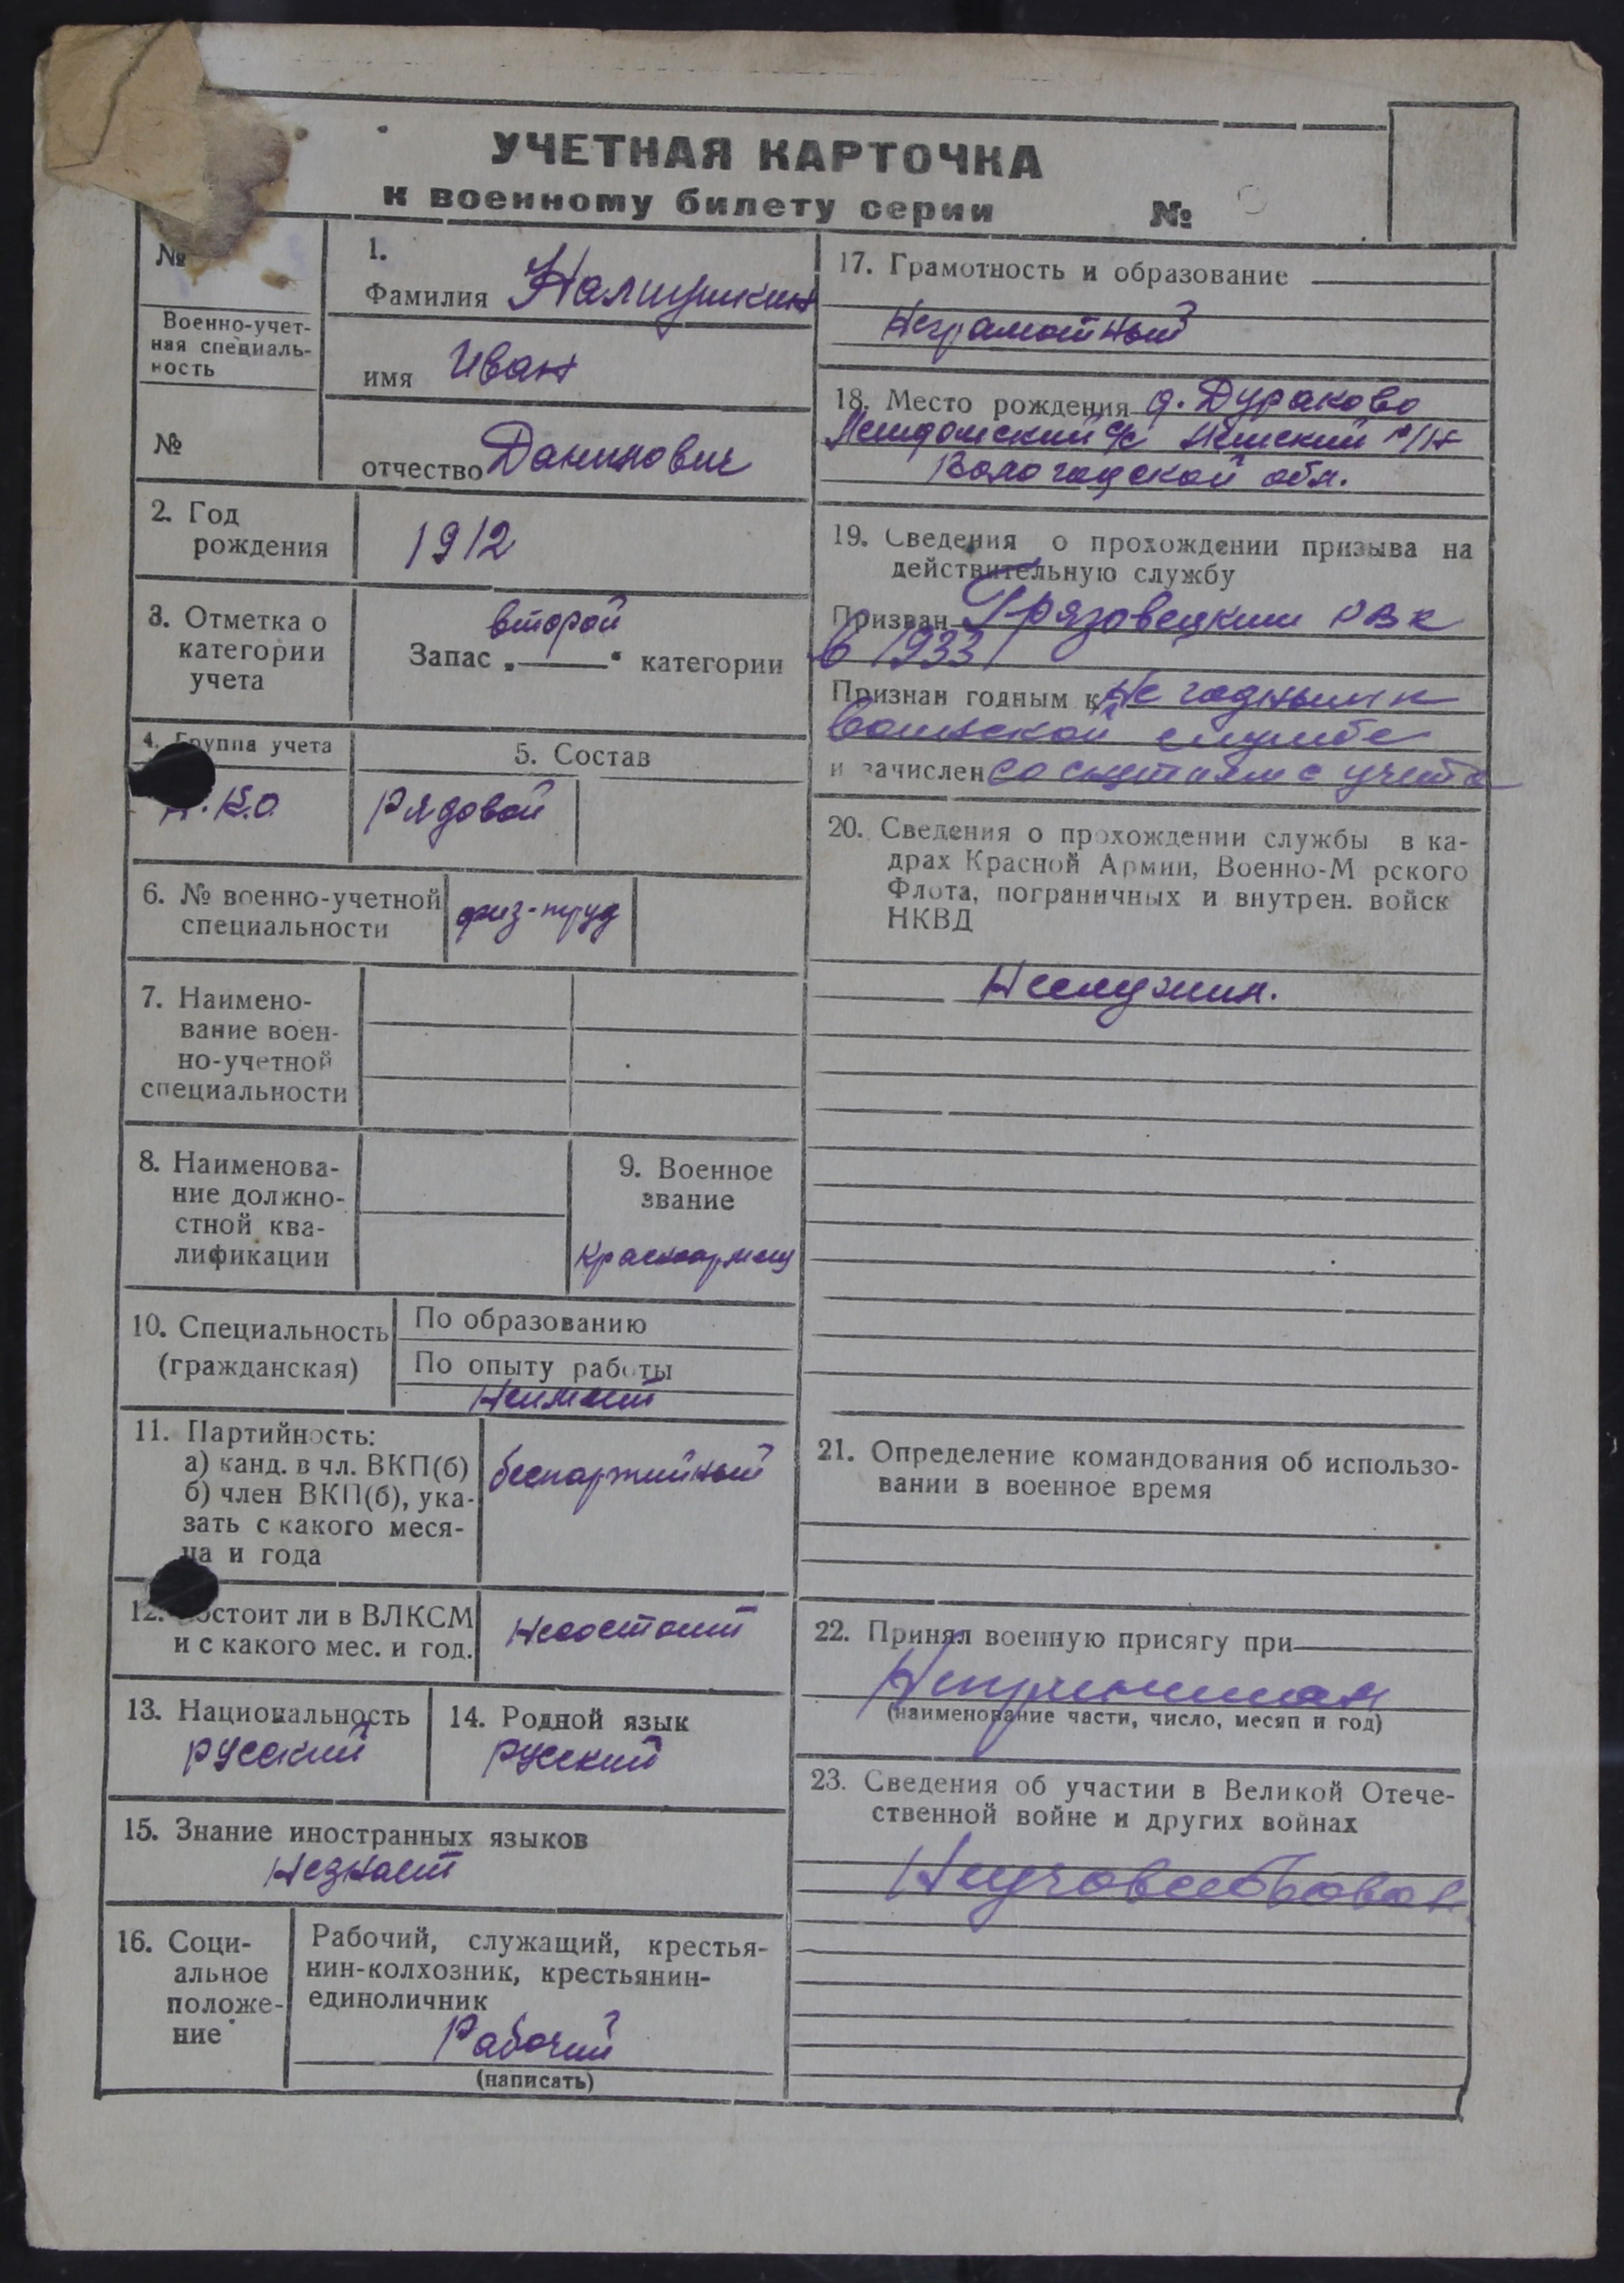 УЧЕТНАЯ КАРТОЧКА
к военному билету серии №
№
Военно-учет-
ная специаль-
ность
№
1.
Фамилия
имя Иван
отчество Данилович
2. Год
рождения
1912
3. Отметка о
категории
учета
второй
Запас „——“ категории
4. Группа учета
5. Состав
Рядовой
6. № военно-учетной
специальности
физ-труд
7. Наимено-
вание воен-
но-учетной
специальности
8. Наименова-
ние должно-
стной ква-
лификации
9. Военное
звание
красноармеец
10. Специальность
(гражданская)
По образованию
По опыту работы
Неимеет
11. Партийность:
а) канд. в чл. ВКП(б)
б) член ВКП(б), ука-
зать с какого меся-
ца и года
беспартийный
12. Состоит ли в ВЛКСМ
и с какого мес. и год.
Несостоит
13. Национальность
русский
14. Родной язык
русский
15. Знание иностранных языков
Незнает
16. Соци-
альное
положе-
ние
Рабочий, служащий, крестья-
нин-колхозник, крестьянин-
единоличник
Рабочий
(написать)
17. Грамотность и образование
Неграмотный
18. Место рождения д. Дураково
с/с р/н
Вологодской обл.
19. Сведения о прохождении призыва на
действительную службу
Призван Грязовецким РВК
в 1933
Признан годным к Не годным к
воинской службе
и зачислен со снятием с учета
20. Сведения о прохождении службы в ка-
драх Красной Армии, Военно-М рского
Флота, пограничных и внутрен. войск
НКВД
Неслужил.
21. Определение командования об использо-
вании в военное время
22. Принял военную присягу при
Непринимал
(наименование части, число, месяц и год)
23. Сведения об участии в Великой Отече-
ственной войне и других войнах
Неучавствовал